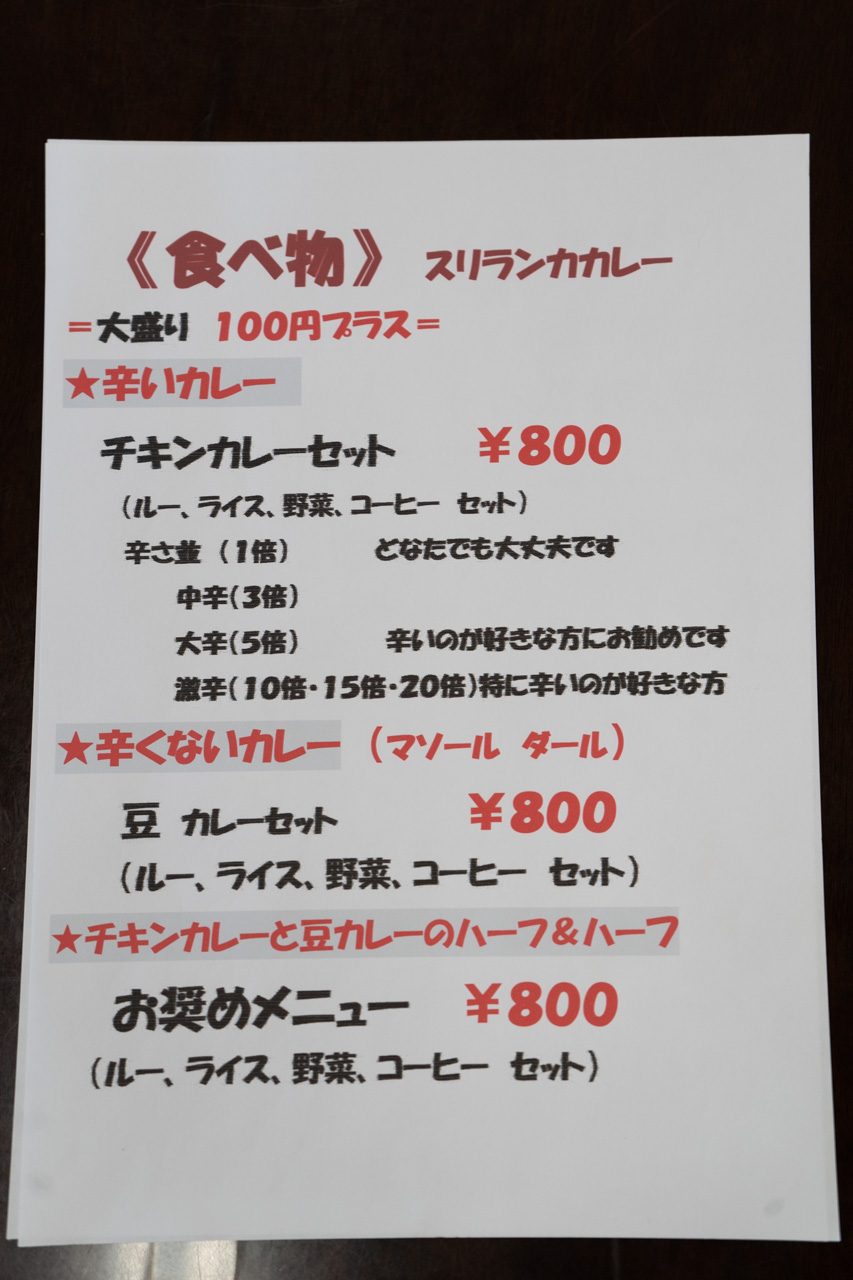 《食べ物》 スリランカカレー
＝大盛り 100円プラス＝
★辛いカレー
チキンカレーセット ￥800
（ルー、ライス、野菜、コーヒー セット）
辛さ並（1倍） どなたでも大丈夫です
中辛（3倍）
大辛（5倍） 辛いのが好きな方にお勧めです
激辛（10倍・15倍・20倍）特に辛いのが好きな方
★辛くないカレー（マソール ダール）
豆 カレーセット ￥800
（ルー、ライス、野菜、コーヒー セット）
★チキンカレーと豆カレーのハーフ＆ハーフ
お奨めメニュー ￥800
（ルー、ライス、野菜、コーヒー セット）